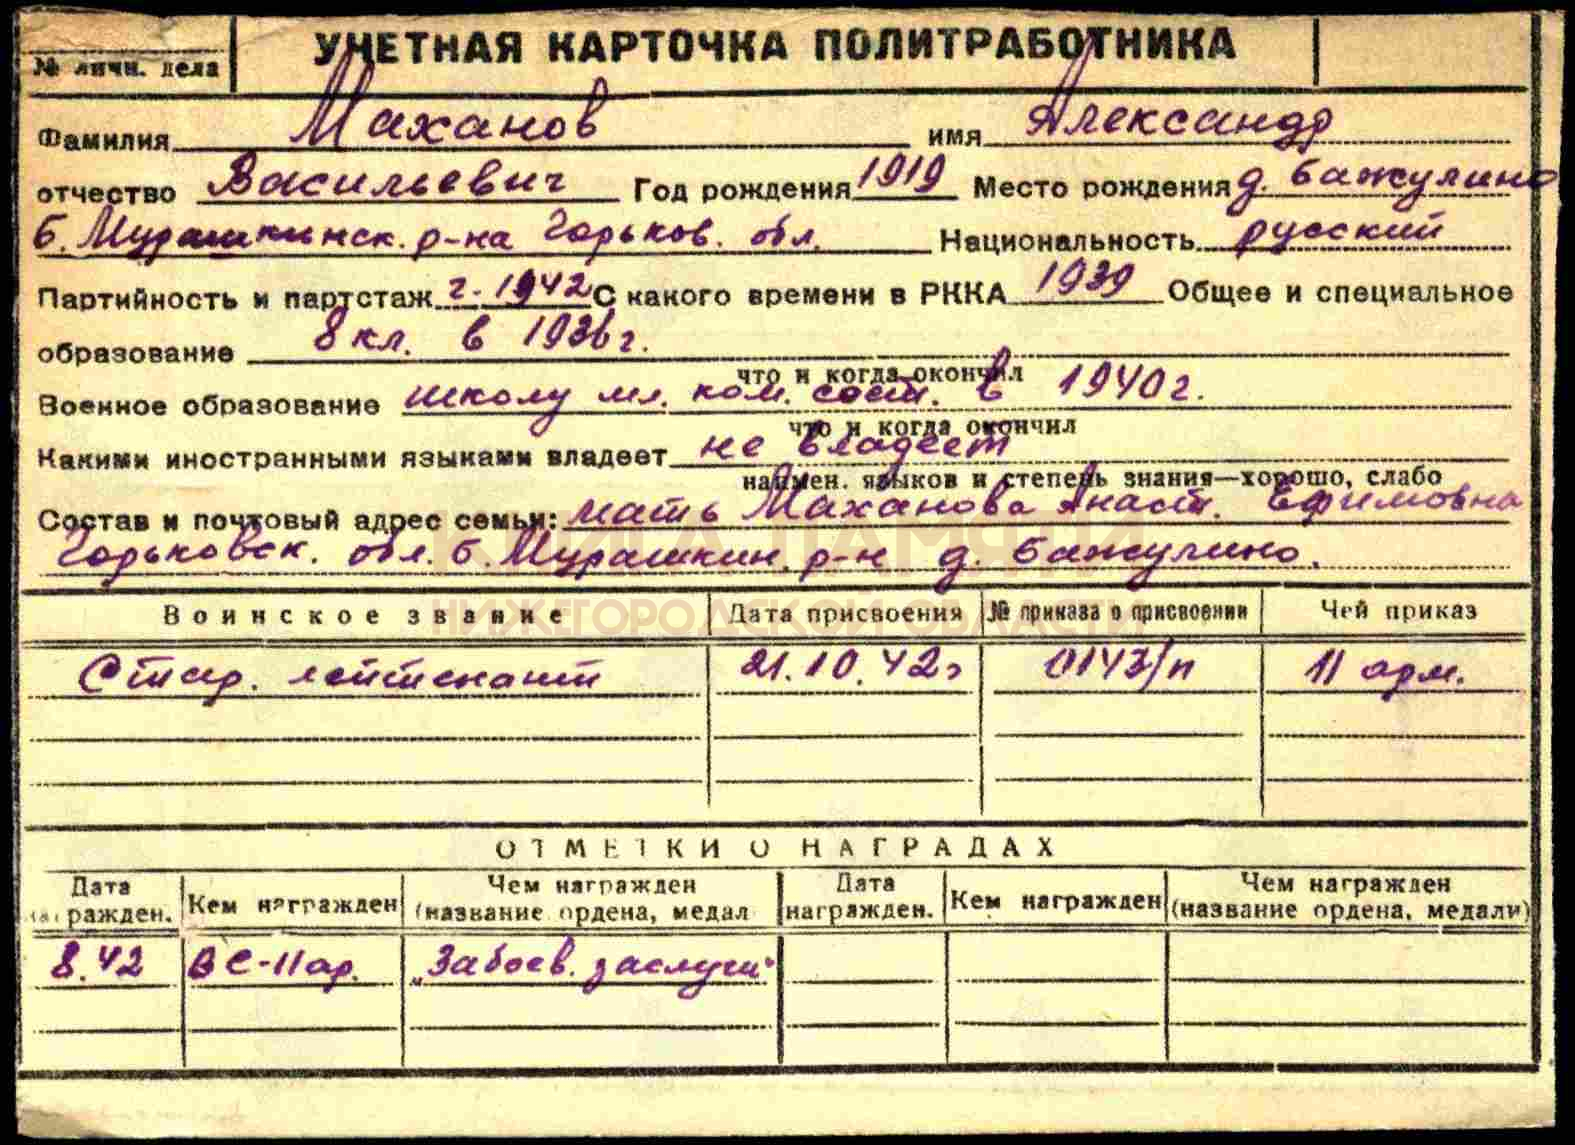 УЧЕТНАЯ КАРТОЧКА ПОЛИТРАБОТНИКА
№ личн. дела
Фамилия Маханов имя Александр
отчество Васильевич Год рождения 1919 Место рождения д. Бажулино
Б. Мурашкинск. р-на Горьков. обл. Национальность русский
Партийность и партстаж г. 1942 С какого времени в РККА 1939 Общее и специальное
образование 8 кл. в 1936 г.
что и когда окончил
Военное образование школу мл. ком. сост. в 1940 г.
что и когда окончил
Какими иностранными языками владеет не владеет
наимен. языков и степень знания—хорошо, слабо
Состав и почтовый адрес семьи: мать Маханова Анаст. Ефимовна
Горьковск. обл. Б. Мурашкин. р-н д. Бажулино.
КНИГА ПАМЯТИ
НИЖЕГОРОДСКОЙ ОБЛАСТИ
Воинское звание Дата присвоения № приказа о присвоении Чей приказ
Стар. лейтенант 21.10.42г 0143/п 11 арм.
ОТМЕТКИ О НАГРАДАХ
Дата награжден. Кем награжден Чем награжден (название ордена, медал Дата награжден. Кем награжден Чем награжден (название ордена, медали)
8.42 ВС-11 ар. "За боев. заслуги"